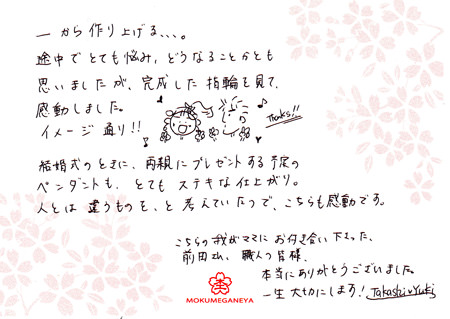 一から作り上げる、、、。
途中でとても悩み、どうなることかとも
思いましたが、完成した指輪を見て、
感動しました。
イメージ通り!!
Thanks!!
結婚式のときに、両親にプレゼントする予定の
ペンダントも、とてもステキな仕上がり。
人とは違うものを、と考えていたので、こちらも感動です。
こちらの我がママにお付き合い下さった、
前田さん、職人の皆様、
本当にありがとうございました。
一生大切にします! Takashi♥Yuki
MOKUMEGANEYA